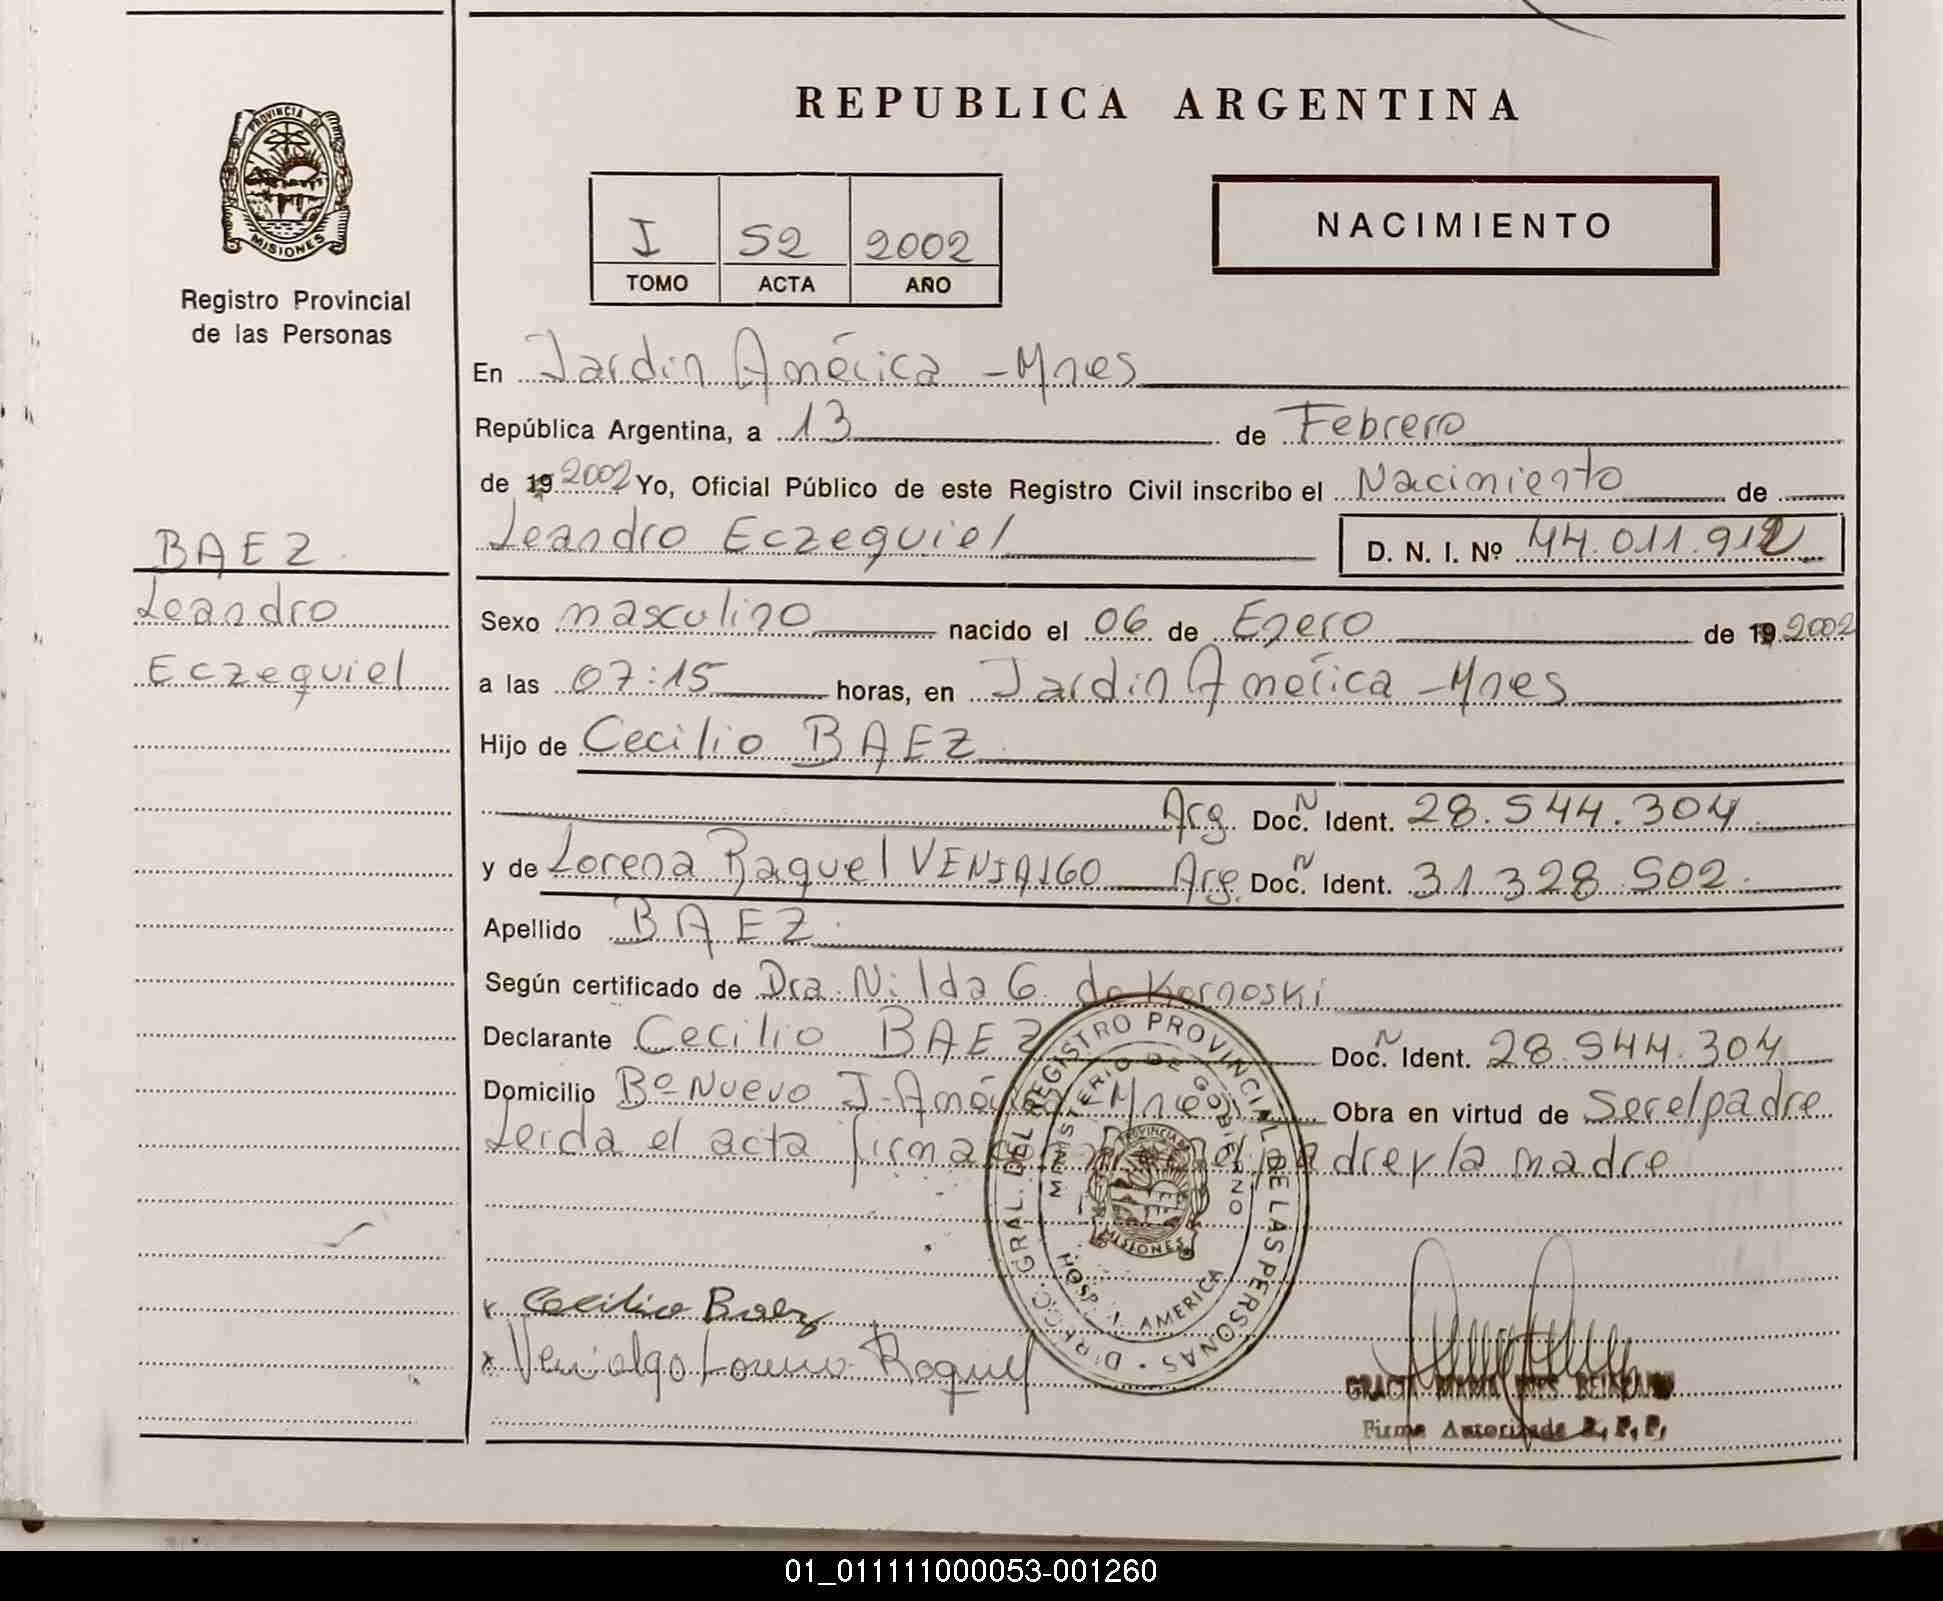 REPUBLICA ARGENTINA
PROVINCIA DE
MISIONES
Registro Provincial
de las Personas
I S2 2002
TOMO ACTA AÑO
NACIMIENTO
En Jardin América - Mnes
República Argentina, a 13 de Febrero
de 19 2002 Yo, Oficial Público de este Registro Civil inscribo el Nacimiento de
Leandro Eczequiel D. N. I. Nº 44.011.912
BAEZ
Leandro
Eczequiel
Sexo masculino nacido el 06 de Enero de 19 2002
a las 07:15 horas, en Jardin América - Mnes
Hijo de Cecilio BAEZ
Arg. Doc. N Ident. 28.544.304
y de Lorena Raquel VENIALGO Arg. Doc. N Ident. 31.328.502
Apellido BAEZ
Según certificado de Dra. Nilda G. de Kornoski
Declarante Cecilio BAEZ Doc. N Ident. 28.544.304
Domicilio Bº Nuevo J. América - Mnes Obra en virtud de Ser el padre
Leida el acta firma el padre y la madre
DIRECC. GRAL. DEL REGISTRO PROVINCIAL DE LAS PERSONAS
MINISTERIO DE GOBIERNO
PROVINCIA DE
MISIONES
HOSP. J. AMERICA
x Cecilio Baez
x Venialgo Lorena Raquel
Firma Autorizada R. P. P.
01_011111000053-001260